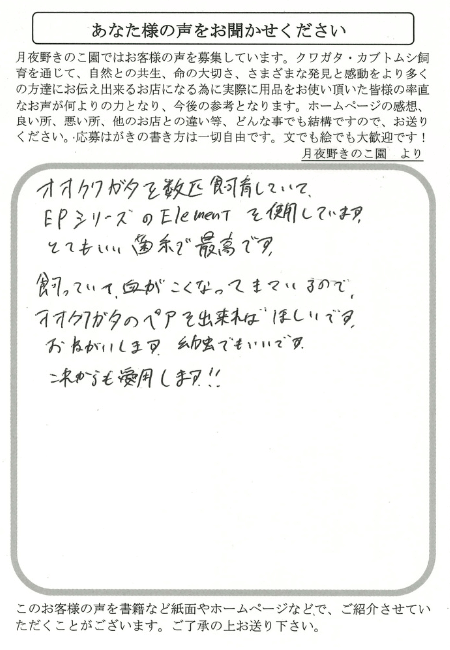 あなた様の声をお聞かせください
月夜野きのこ園ではお客様の声を募集しています。クワガタ・カブトムシ飼
育を通じて、自然との共生、命の大切さ、さまざまな発見と感動をより多く
の方達にお伝え出来るお店になる為に実際に用品をお使い頂いた皆様の率直
なお声が何よりの力となり、今後の参考となります。ホームページの感想、
良い所、悪い所、他のお店との違い等、どんな事でも結構ですので、お送り
ください。応募はがきの書き方は一切自由です。文でも絵でも大歓迎です！
月夜野きのこ園 より
オオクワガタを数匹飼育していて、
EPシリーズのElementを使用しています。
とてもいい菌糸で最高です。
飼っていて、血がこくなってきているので、
オオクワガタのペアを出来ればほしいです。
おねがいします。幼虫でもいいです。
これからも愛用します!!
このお客様の声を書籍など紙面やホームページなどで、ご紹介させてい
ただくことがございます。ご了承の上お送り下さい。